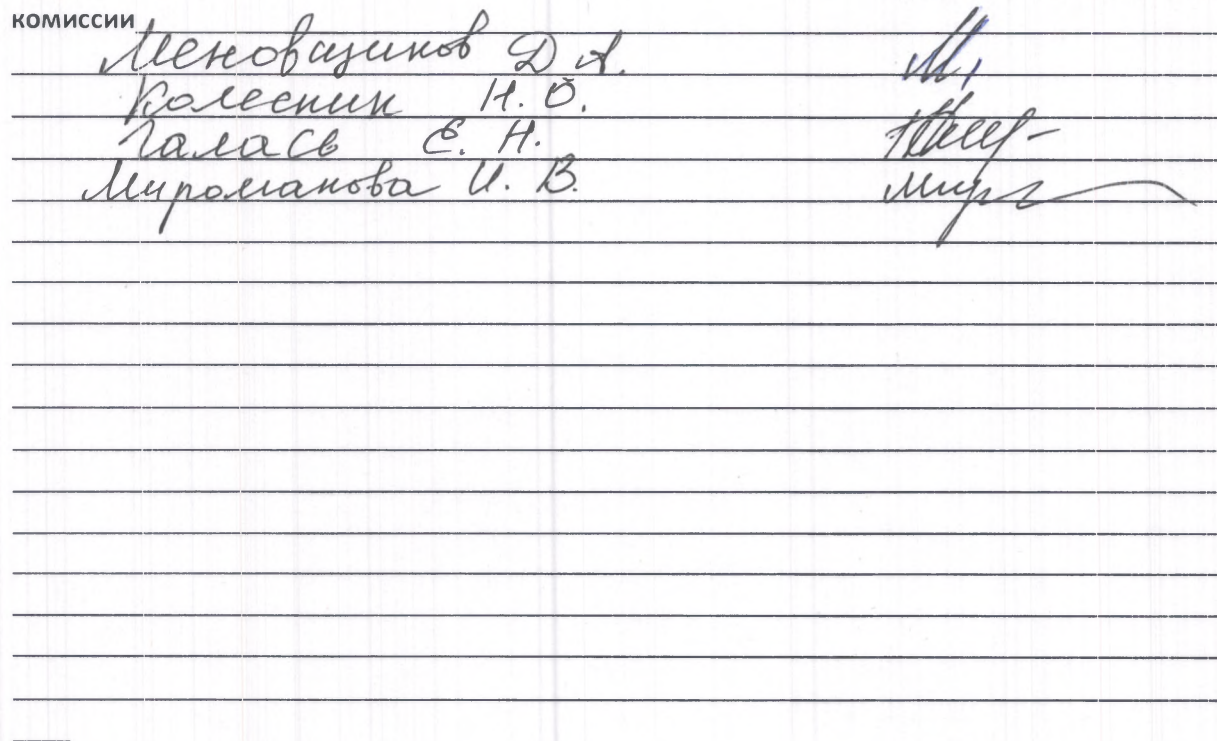 комиссии
Меновщиков Д А.
Колесник Н. О.
Галась Е. Н.
Мироманова И. В.